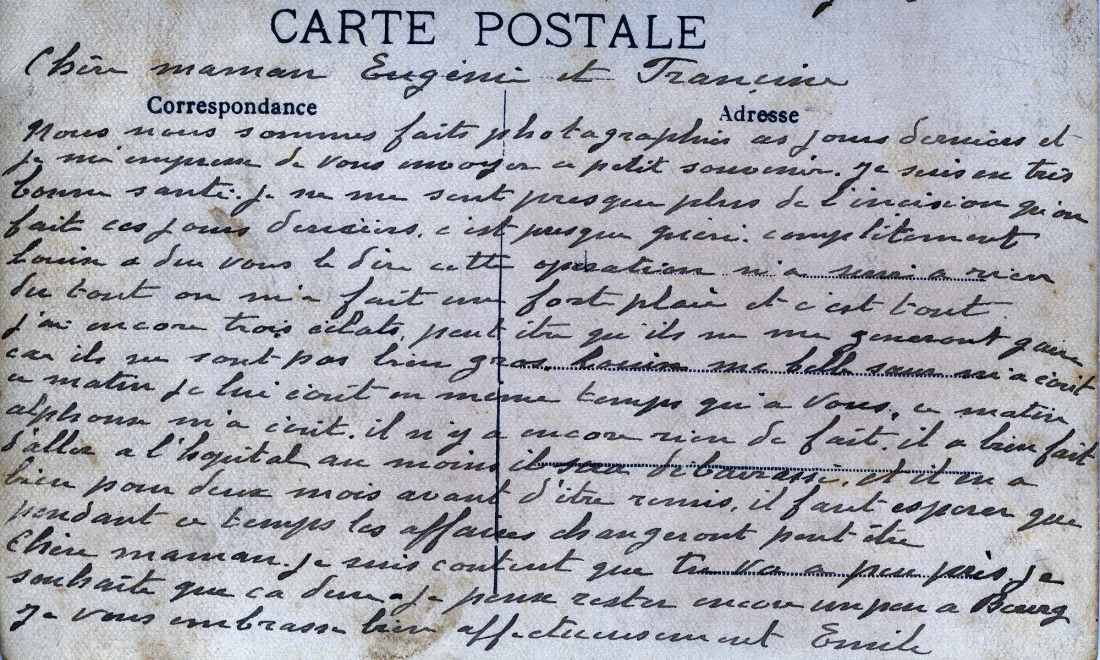 CARTE POSTALE
Chère maman Eugénie et Francine
Correspondance
Adresse
Nous nous sommes faits photographier ces jours derniers et
je m'empresse de vous envoyer ce petit souvenir. Je suis en très
bonne santé. je ne me sent presque plus de l'incision qu'on
fait ces jours derniers. c'est presque guéri. complètement
Louise a du vous le dire cette opération n'a rien
du tout on m'a fait une fort plaie et c'est tout.
j'ai encore trois éclats, peut être qu'ils ne me generont guère
car ils ne sont pas bien gros. Louise ma belle sœur m'a écrit
ce matin je lui écrit en même temps qu'a vous, ce matin
alphonse m'a écrit. il n'y a encore rien de fait. il a bien fait
d'aller a l'hopital au moins il sera débarrassé. et il en a
bien pour deux mois avant d'être remis, il faut esperer que
pendant ce temps les affaires changeront peut être
Chère maman. je suis content que tu va a peu près, je
souhaite que ça dure. je pense rester encore un peu a Bourg
Je vous embrasse bien affectueusement Emile